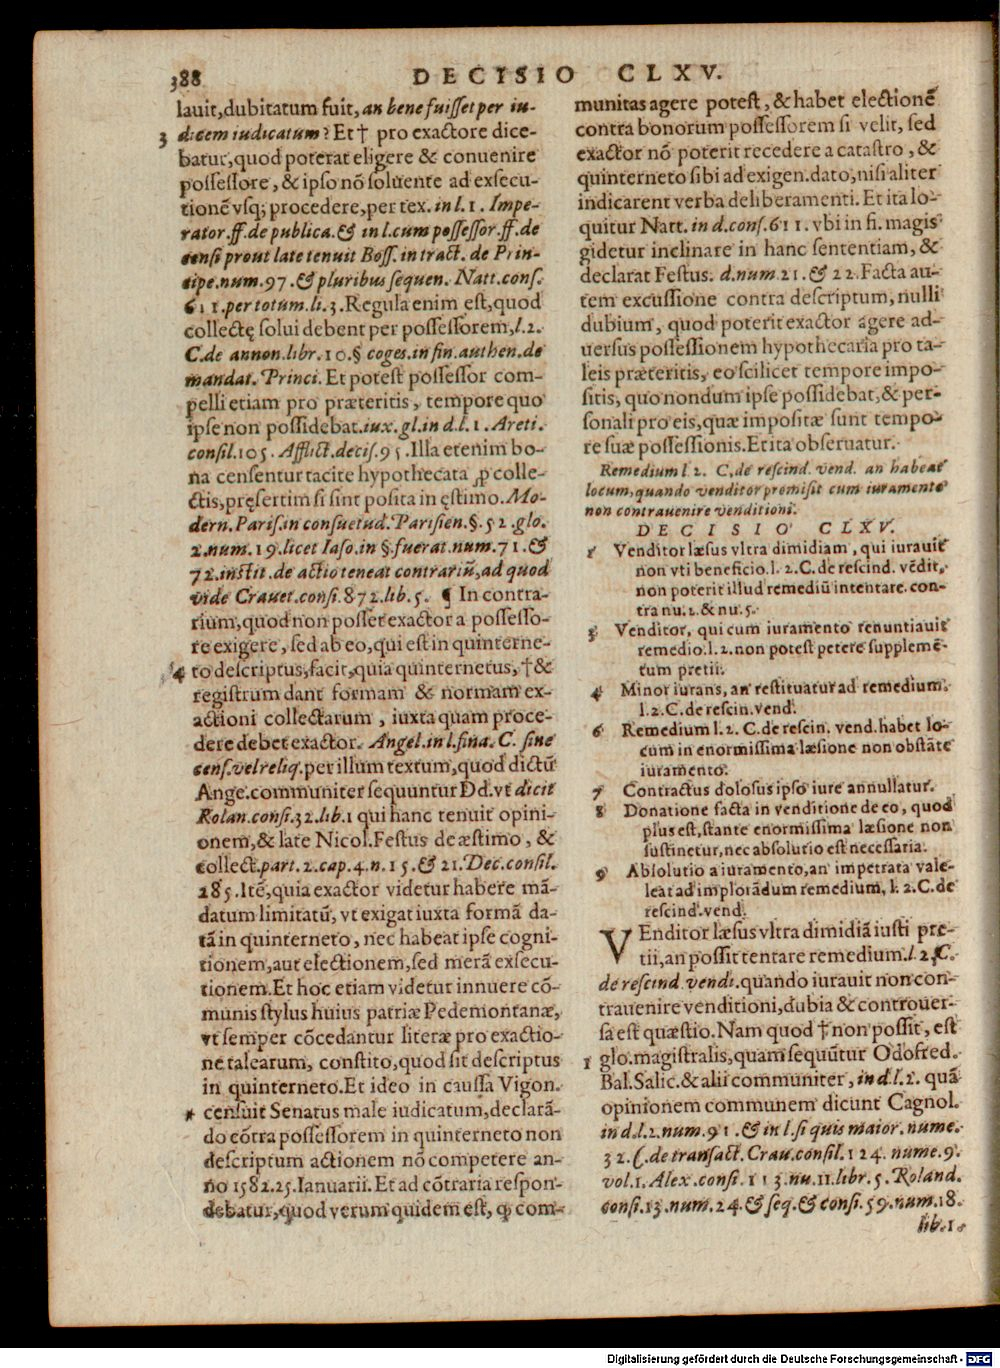 388
DECISIO CLXV.
lauit, dubitatum fuit, an bene fuiſſet per iu-
3 dicem iudicatum? Et † pro exactore dice-
batur, quod poterat eligere & conuenire
poſſeſſore, & ipſo nō ſoluente ad exſecu-
tionē vſq; procedere, per tex. in l. 1. Impe-
rator. ff. de publica. & in l. cum poſſeſſor. ff. de
cenſi prout late tenuit Boſſ. in tract. de Prin-
cipe. num. 97. & pluribus ſequen. Natt. conſ.
611. per totum. li. 3. Regula enim eſt, quod
collectę ſolui debent per poſſeſſorem, l. 2.
C. de annon. libr. 10. § coges. in fin. authen. de
mandat. Princi. Et poteſt poſſeſſor com-
pelli etiam pro præteritis, tempore quo
ipſe non poſſidebat. iux. gl. in d. l. 1. Areti.
conſil. 105. Afflict. deciſ. 95. Illa etenim bo-
na cenſentur tacite hypothecata ꝓ colle-
ctis, pręſertim ſi ſint poſita in ęſtimo. Mo-
dern. Pariſ. in conſuetud. Pariſien. §. 52. glo.
2. num. 19. licet Iaſo. in §. fuerat. num. 71. &
72. inſtit. de actio teneat contrariū, ad quod
vide Crauet. conſi. 872. lib. 5. ¶ In contra-
rium, quod non poſſet exactor a poſſeſſo-
re exigere, ſed ab eo, qui eſt in quinterne-
4 to deſcriptus, facit, quia quinternetus, † &
regiſtrum dant formam & normam ex-
actioni collectarum, iuxta quam proce-
dere debet exactor. Angel. in l. fina. C. ſine
cenſ. vel reliq. per illum textum, quod dictū
Ange. communiter ſequuntur Dd. vt dicit
Rolan. conſi. 32. lib. 1 qui hanc tenuit opini-
onem, & late Nicol. Feſtus de æſtimo, &
collect. part. 2. cap. 4. n. 15. & 21. Dec. conſil.
285. Itē, quia exactor videtur habere mā-
datum limitatū, vt exigat iuxta formā da-
tā in quinterneto, nec habeat ipſe cogni-
tionem, aut electionem, ſed merā exſecu-
tionem. Et hoc etiam videtur innuere cō-
munis ſtylus huius patriæ Pedemontanæ,
vt ſemper cōcedantur literæ pro exactio-
ne talearum, conſtito, quod ſit deſcriptus
in quinterneto. Et ideo in cauſſa Vigon.
* cenſuit Senatus male iudicatum, declarā-
do cōtra poſſeſſorem in quinterneto non
deſcriptum actionem nō competere an-
no 1582. 25. Ianuarii. Et ad cōtraria reſpon-
debatur, quod verum quidem eſt, ꝙ com-
munitas agere poteſt, & habet electionē
contra bonorum poſſeſſorem ſi velit, ſed
exactor nō poterit recedere a cataſtro, &
quinterneto ſibi ad exigen. dato, niſi aliter
indicarent verba deliberamenti. Et ita lo-
quitur Natt. in d. conſ. 611. vbi in fi. magis
gidetur inclinare in hanc ſententiam, &
declarat Feſtus. d. num. 21. & 22. Facta au-
tem excuſſione contra deſcriptum, nulli
dubium, quod poterit exactor agere ad-
uerſus poſſeſſionem hypothecaria pro ta-
leis præteritis, eo ſcilicet tempore impo-
ſitis, quo nondum ipſe poſſidebat, & per-
ſonali pro eis, quæ impoſitæ ſunt tempo-
re ſuæ poſſeſſionis. Et ita obſeruatur.
Remedium l 2. C. de reſcind. vend. an habeat
locum, quando venditor promiſit cum iuramento
non contrauenire venditioni.
DECISIO CLXV.
1 Venditor læſus vltra dimidiam, qui iurauit
non vti beneficio. l. 2. C. de reſcind. vēdit.
non poterit illud remediū intentare. con-
tra nu. 2. & nu. 5.
3 Venditor, qui cum iuramento renuntiauit
remedio. l. 2. non poteſt petere ſupplemē-
tum pretii.
4 Minor iurans, an reſtituatur ad remedium.
l. 2. C. de reſcin. vend.
6 Remedium l. 2. C. de reſcin. vend. habet lo-
cum in enormiſſima læſione non obſtāte
iuramento.
7 Contractus doloſus ipſo iure annullatur.
8 Donatione facta in venditione de eo, quod
plus eſt, ſtante enormiſſima læſione non
ſuſtinetur, nec abſolutio eſt neceſſaria.
9 Abſolutio a iuramento, an impetrata vale-
leat ad implorādum remedium, l. 2. C. de
reſcind. vend.
VEnditor læſus vltra dimidiā iuſti pre-
tii, an poſſit tentare remedium. l. 2. C.
de reſcind. vendi. quando iurauit non con-
trauenire venditioni, dubia & controuer-
ſa eſt quæſtio. Nam quod † non poſſit, eſt
1 glo. magiſtralis, quam ſequūtur Odofred.
Bal. Salic. & alii communiter, in d. l. 2. quā
opinionem communem dicunt Cagnol.
in d. l. 2. num. 91. & in l. ſi quis maior. nume.
32. C. de tranſact. Crau. conſil. 124. nume. 9.
vol. 1. Alex. conſi. 113. nu. 11. libr. 5. Roland.
conſi. 13. num. 24. & ſeq. & conſi. 59. num. 18.
lib. 1.
Digitalisierung gefördert durch die Deutsche Forschungsgemeinschaft - DFG